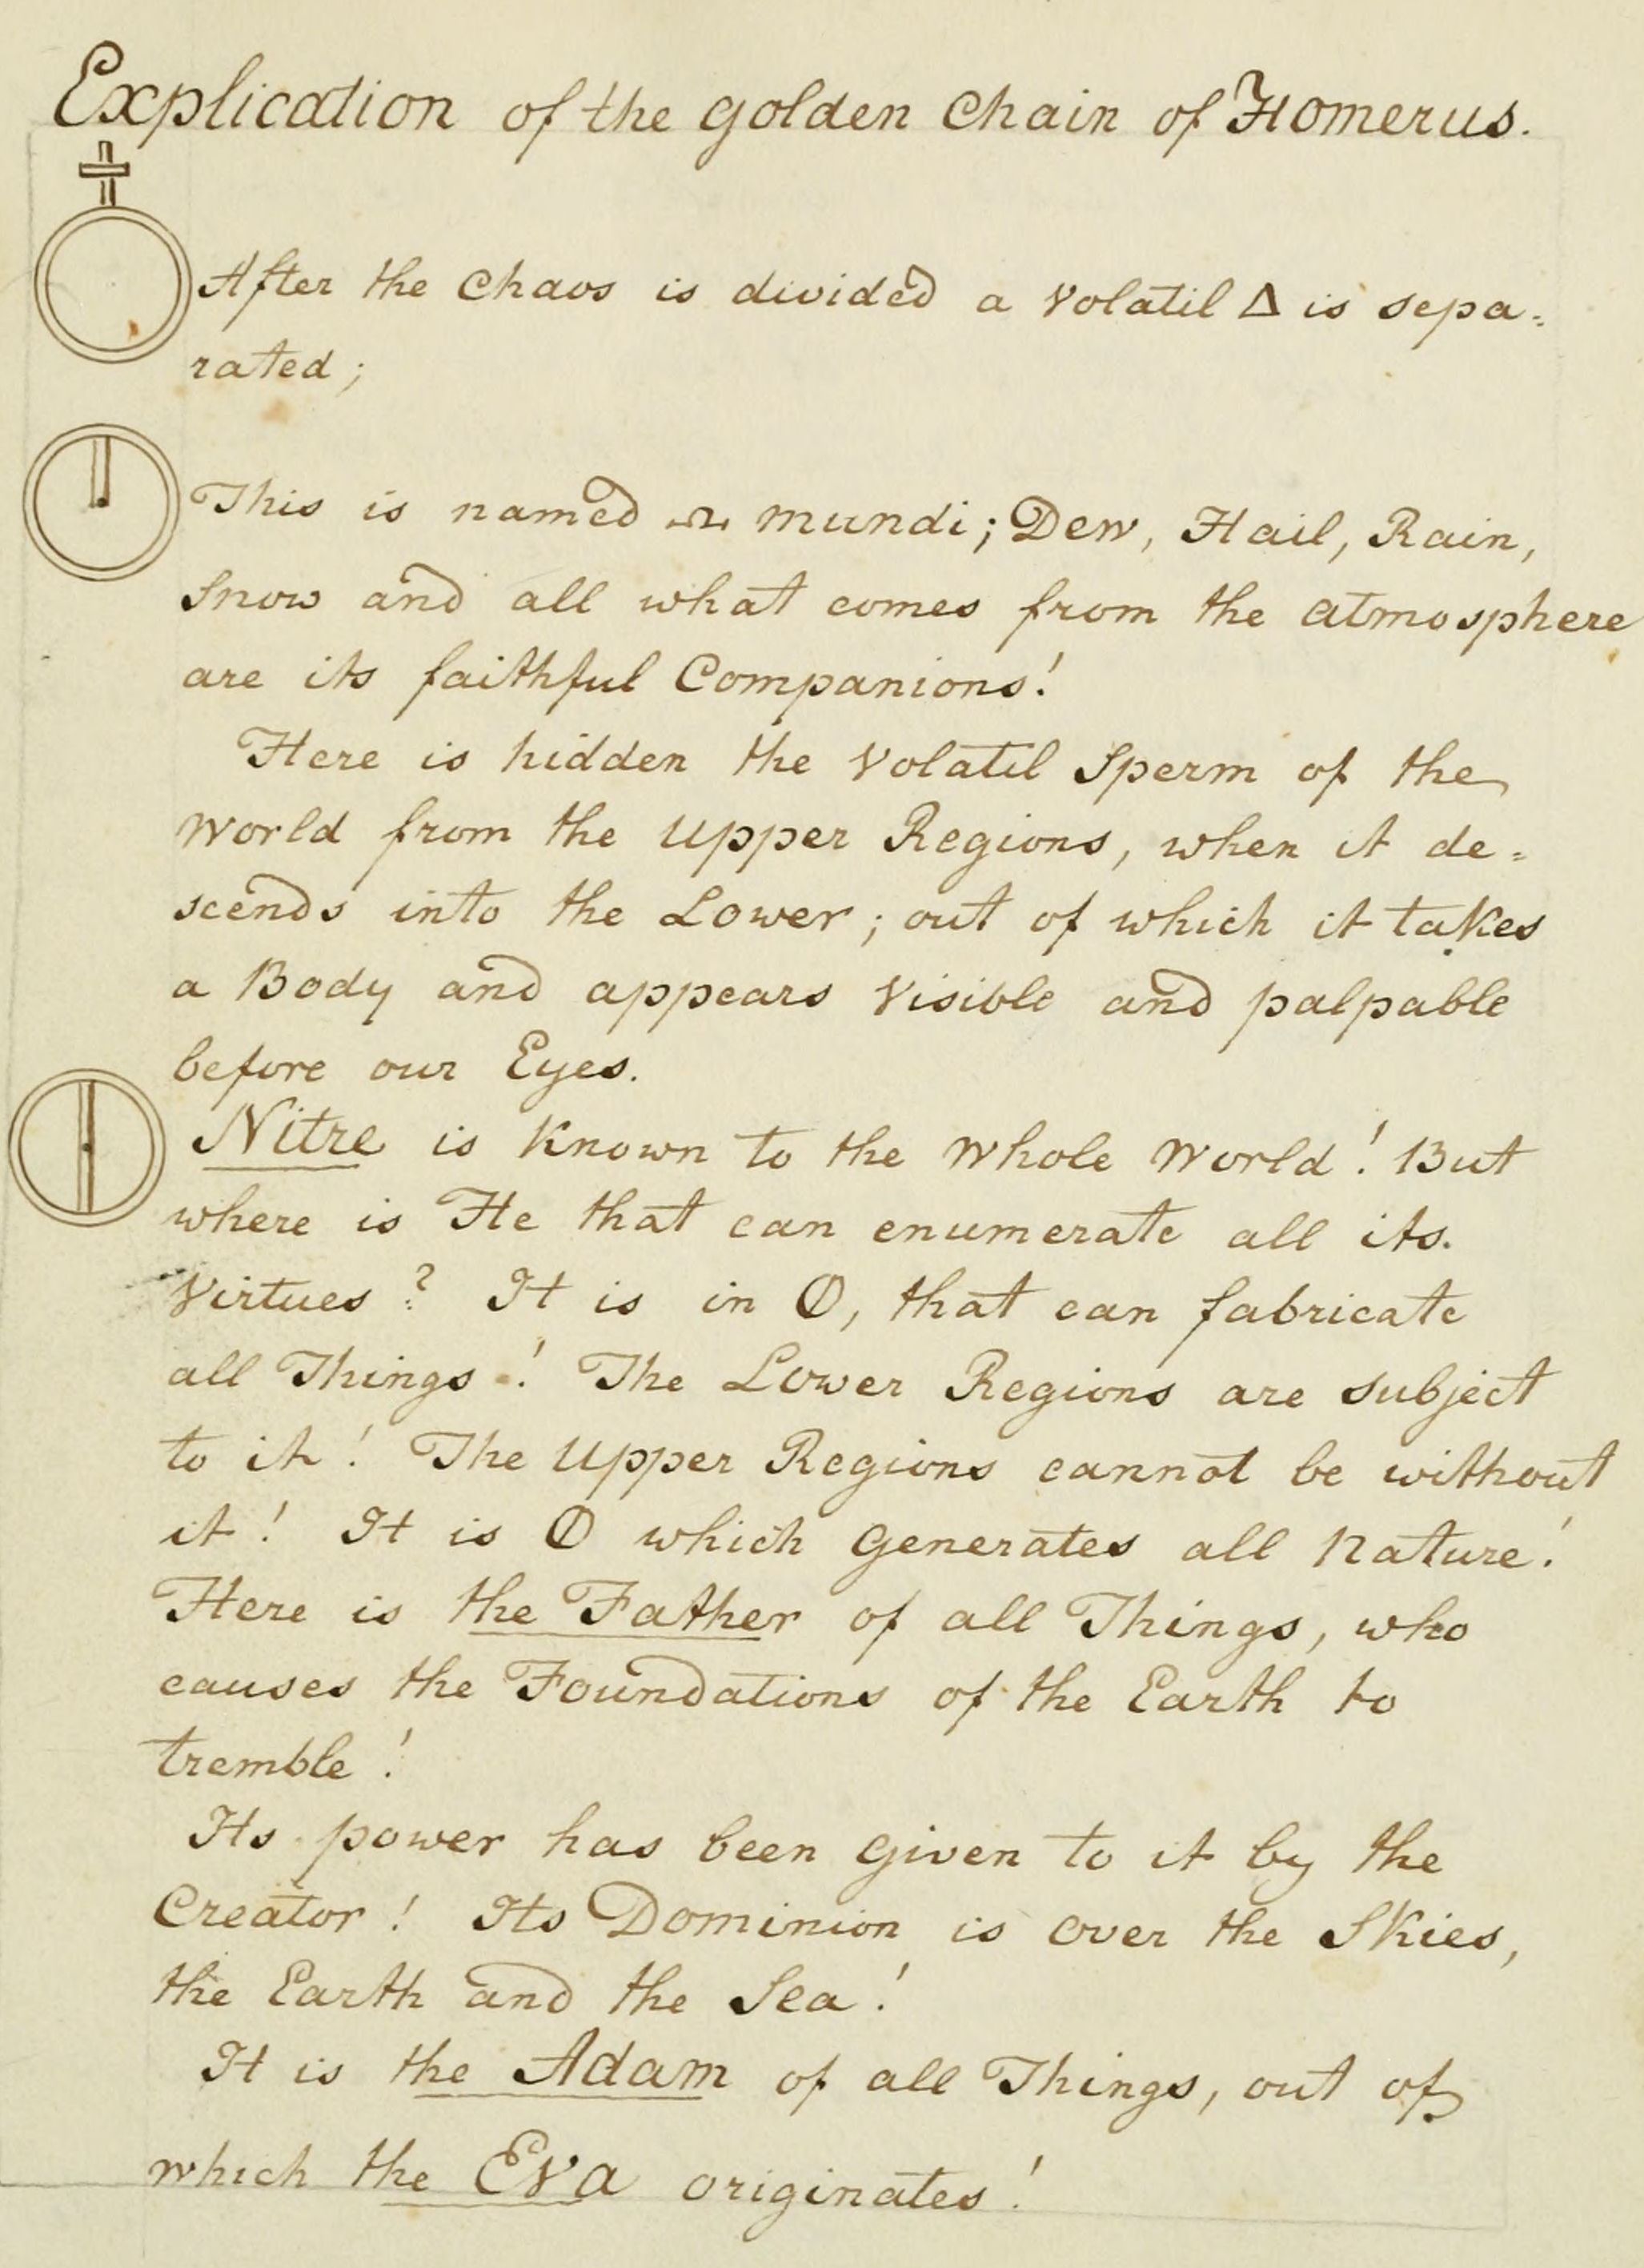 Explication of the golden Chain of Homerus.
After the Chaos is divided a Volatil 🜂 is sepa:
rated;
This is named mundi; Dew, Hail, Rain,
Snow and all what comes from the atmosphere
are its faithful Companions!
Here is hidden the Volatil Sperm of the
World from the Upper Regions, when it de:
scends into the Lower; out of which it takes
a Body and appears Visible and palpable
before our Eyes.
Nitre is Known to the Whole World! But
where is He that can enumerate all its.
Virtues? It is in ⦶, that can fabricate
all Things! The Lower Regions are subject
to it! The Upper Regions cannot be without
it! It is ⦶ which generates all Nature!
Here is the Father of all Things, who
causes the Foundations of the Earth to
tremble!
Its power has been given to it by the
Creator! Its Dominion is over the Skies,
the Earth and the Sea!
It is the Adam of all Things, out of
which the Eva originates!